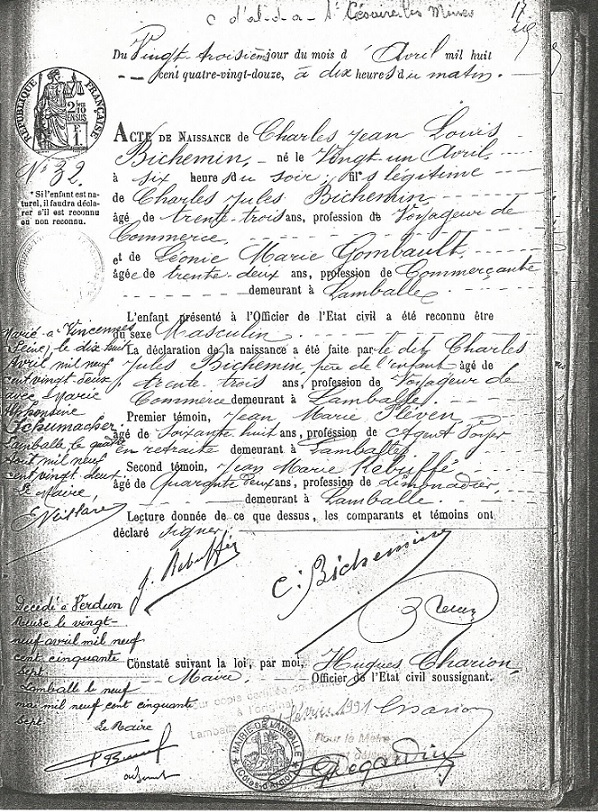 c d'al-d-a- St Césaire les Mines
17
Du Vingt troisième jour du mois d'Avril mil huit
cent quatre-vingt-douze, à dix heures du matin.
RÉPUBLIQUE FRANÇAISE
N° 32
* Si l'enfant est na-
turel, il faudra décla-
rer s'il est reconnu
ou non reconnu.
ACTE DE NAISSANCE de Charles Jean Louis
Bichemin, né le Vingt un Avril,
à six heures du soir, fils légitime
de Charles Jules Bichemin,
âgé de trente-trois ans, profession de Voyageur de
Commerce,
et de Léonie Marie Gombault,
âgée de trente-deux ans, profession de Commerçante
demeurant à Lamballe
L'enfant présenté à l'Officier de l'Etat civil a été reconnu être
du sexe Masculin
La déclaration de la naissance a été faite par le dit Charles
Jules Bichemin, père de l'enfant âgé de
trente-trois ans, profession de Voyageur de
Commerce demeurant à Lamballe.
Premier témoin, Jean Marie Pleven
âgé de Soixante huit ans, profession de Agent Voyer
en retraite demeurant à Lamballe
Second témoin, Jean Marie Rebuffé
âgé de Quarante deux ans, profession de Limonadier,
demeurant à Lamballe.
Lecture donnée de ce que dessus, les comparants et témoins ont
déclaré signer.
J. Rebuffé
C. Bichemin
Constaté suivant la loi, par moi, Hugues Charion,
Maire, Officier de l'Etat civil soussigné.
Marié à Vincennes
Seine, le dix huit
Avril mil neuf
cent vingt-deux
avec Marie
Alphonsine
Schumacher.
Lamballe le quatre
août mil neuf
cent vingt deux
Le Maire,
Décédé à Verdun
Meuse le vingt-
neuf avril mil neuf
cent cinquante
sept.
Lamballe le neuf
mai mil neuf cent cinquante
sept.
Le Maire
Pour copie certifiée conforme
à l'original
Lamballe
février 1991
Pour le Maire
MAIRIE DE LAMBALLE
(Côtes-d'Armor)